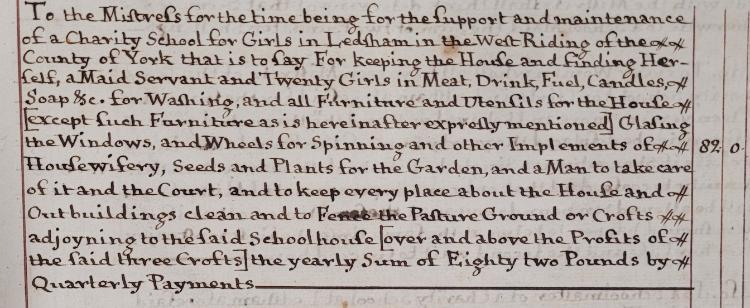 To the Miſtreſs for the time being for the ſupport and maintenance
of a Charity School for Girls in Ledſham in the Weſt Riding of the
County of York that is to ſay For keeping the Houſe and finding Her-
ſelf, a Maid Servant and Twenty Girls in Meat, Drink, Fuel, Candles,
Soap &c. for Waſhing, and all Furniture and Utenſils for the Houſe
[except ſuch Furniture as is hereinafter expreſly mentioned] Glaſing
the Windows, and Wheels for Spinning and other Implements of 82 0
Houſewifery, Seeds and Plants for the Garden, and a Man to take care
of it and the Court, and to keep every place about the Houſe and
Outbuildings clean and to Fence the Paſture Ground or Crofts
adjoyning to the ſaid Schoolhouſe [over and above the Profits of
the ſaid three Crofts] the yearly Sum of Eighty two Pounds by
Quarterly Payments